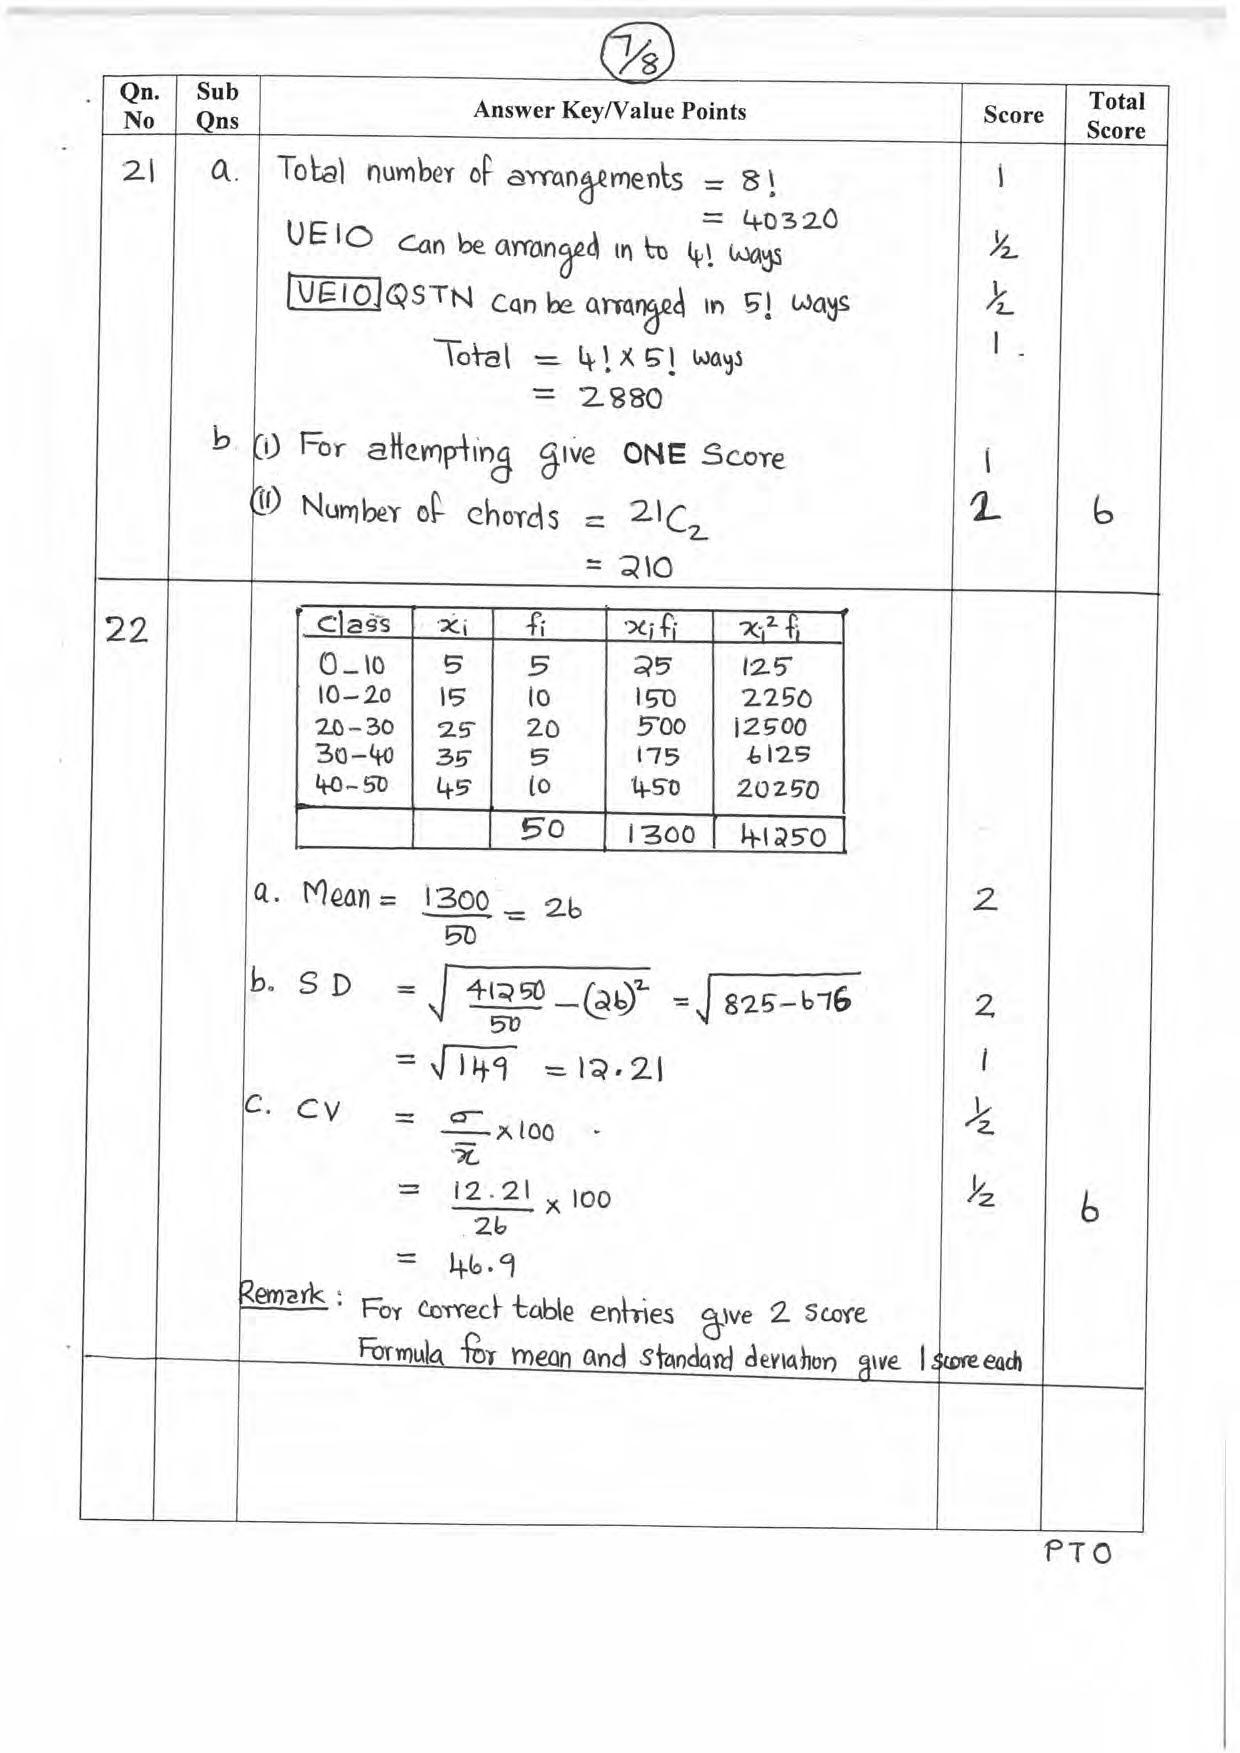 7/8
Qn. No Sub Qns Answer Key/Value Points Score Total Score
21 a. Total number of arrangements = 8! 1
= 40320
UEIO can be arranged in to 4! ways ½
UEIO QSTN can be arranged in 5! ways ½
Total = 4! × 5! ways 1
= 2880
b (i) For attempting give ONE Score 1
(ii) Number of chords = 21C₂ 2 6
= 210
22
Class xᵢ fᵢ xᵢfᵢ xᵢ²fᵢ
0-10 5 5 25 125
10-20 15 10 150 2250
20-30 25 20 500 12500
30-40 35 5 175 6125
40-50 45 10 450 20250
50 1300 41250
a. Mean = 1300/50 = 26 2
b. SD = √(41250/50 - (26)²) = √(825-676) 2
= √149 = 12.21 1
c. CV = σ/x̄ × 100 ½
= 12.21/26 × 100 ½ 6
= 46.9
Remark: For correct table entries give 2 score
Formula for mean and standard deviation give 1 score each
PTO